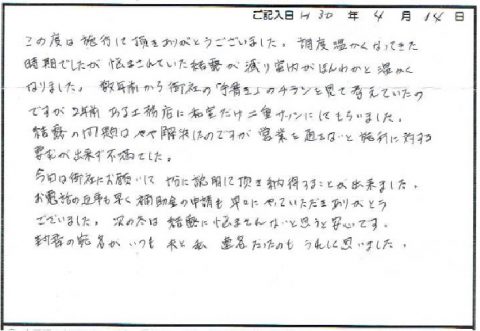 ご記入日 H30 年 4 月 14 日
この度は施行して頂きありがとうございました。調度温かくなってきた
時期でしたが悩まされていた結露が減り室内がほんわかと温かく
なりました。数年前から御社の「手書き」のチラシを見て考えていたの
ですが2年前 ある工務店に和室だけ二重サッシにしてもらいました。
結露の問題はやや解決したのですが営業を通さないと施行に対する
要望が出来ず不満でした。
今回は御社にお願いして 説明して頂き納得することが出来ました。
お電話の 早く補助金の申請も早々にやっていただきありがとう
ございました。次の冬は結露に悩まされないと思うと安心です。
封書の宛名が いつも 夫と私 連名だったのも うれしく思いました。